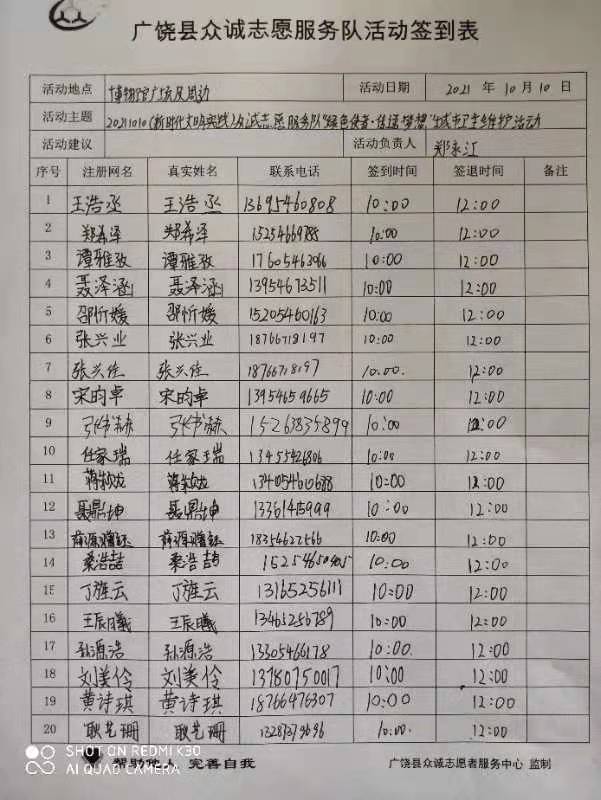 广饶县众诚志愿服务队活动签到表
活动地点 博物馆广场及周边 活动日期 2021 年 10 月 10 日
活动主题 20211010(新时代文明实践)众诚志愿服务队"绿色使者·传递梦想"城市卫生维护活动
活动建议 活动负责人 郑永江
序号 注册网名 真实姓名 联系电话 签到时间 签退时间 备注
1 王浩丞 王浩丞 13695460808 10:00 12:00
2 郑希泽 郑希泽 15254669788 10:00 12:00
3 谭雅孜 谭雅孜 17605463066 10:00 12:00
4 聂泽涵 聂泽涵 13954673511 10:00 12:00
5 邵忻媛 邵忻媛 15205460163 10:00 12:00
6 张兴业 张兴业 18766718197 10:00 12:00
7 张兴佳 张兴佳 18766718197 10:00. 12:00
8 宋昀卓 宋昀卓 13954659665 10:00 12:00
9 张书赫 张书赫 15263835899 10:00 12:00
10 任家瑞 任家瑞 13455426806 10:00 12:00
11 10:00 12:00
12 聂鼎坤 聂鼎坤 10:00 12:00
13 18354627566 10:00 12:00
14 桑浩喆 桑浩喆 10:00 12:00
15 丁旌云 丁旌云 13165256111 10:00 12:00
16 王辰曦 王辰曦 13465256789 10:00 12:00
17 孙源浩 孙源浩 13305466178 10:00. 12:00
18 刘美伶 刘美伶 13780750017 10:00 12:00
19 黄诗琪 黄诗琪 18766476307 10:00 12:00
20 耿艺珊 耿艺珊 10:00. 12:00
帮助他人 完善自我 广饶县众诚志愿者服务中心 监制
SHOT ON REDMI K30
AI QUAD CAMERA